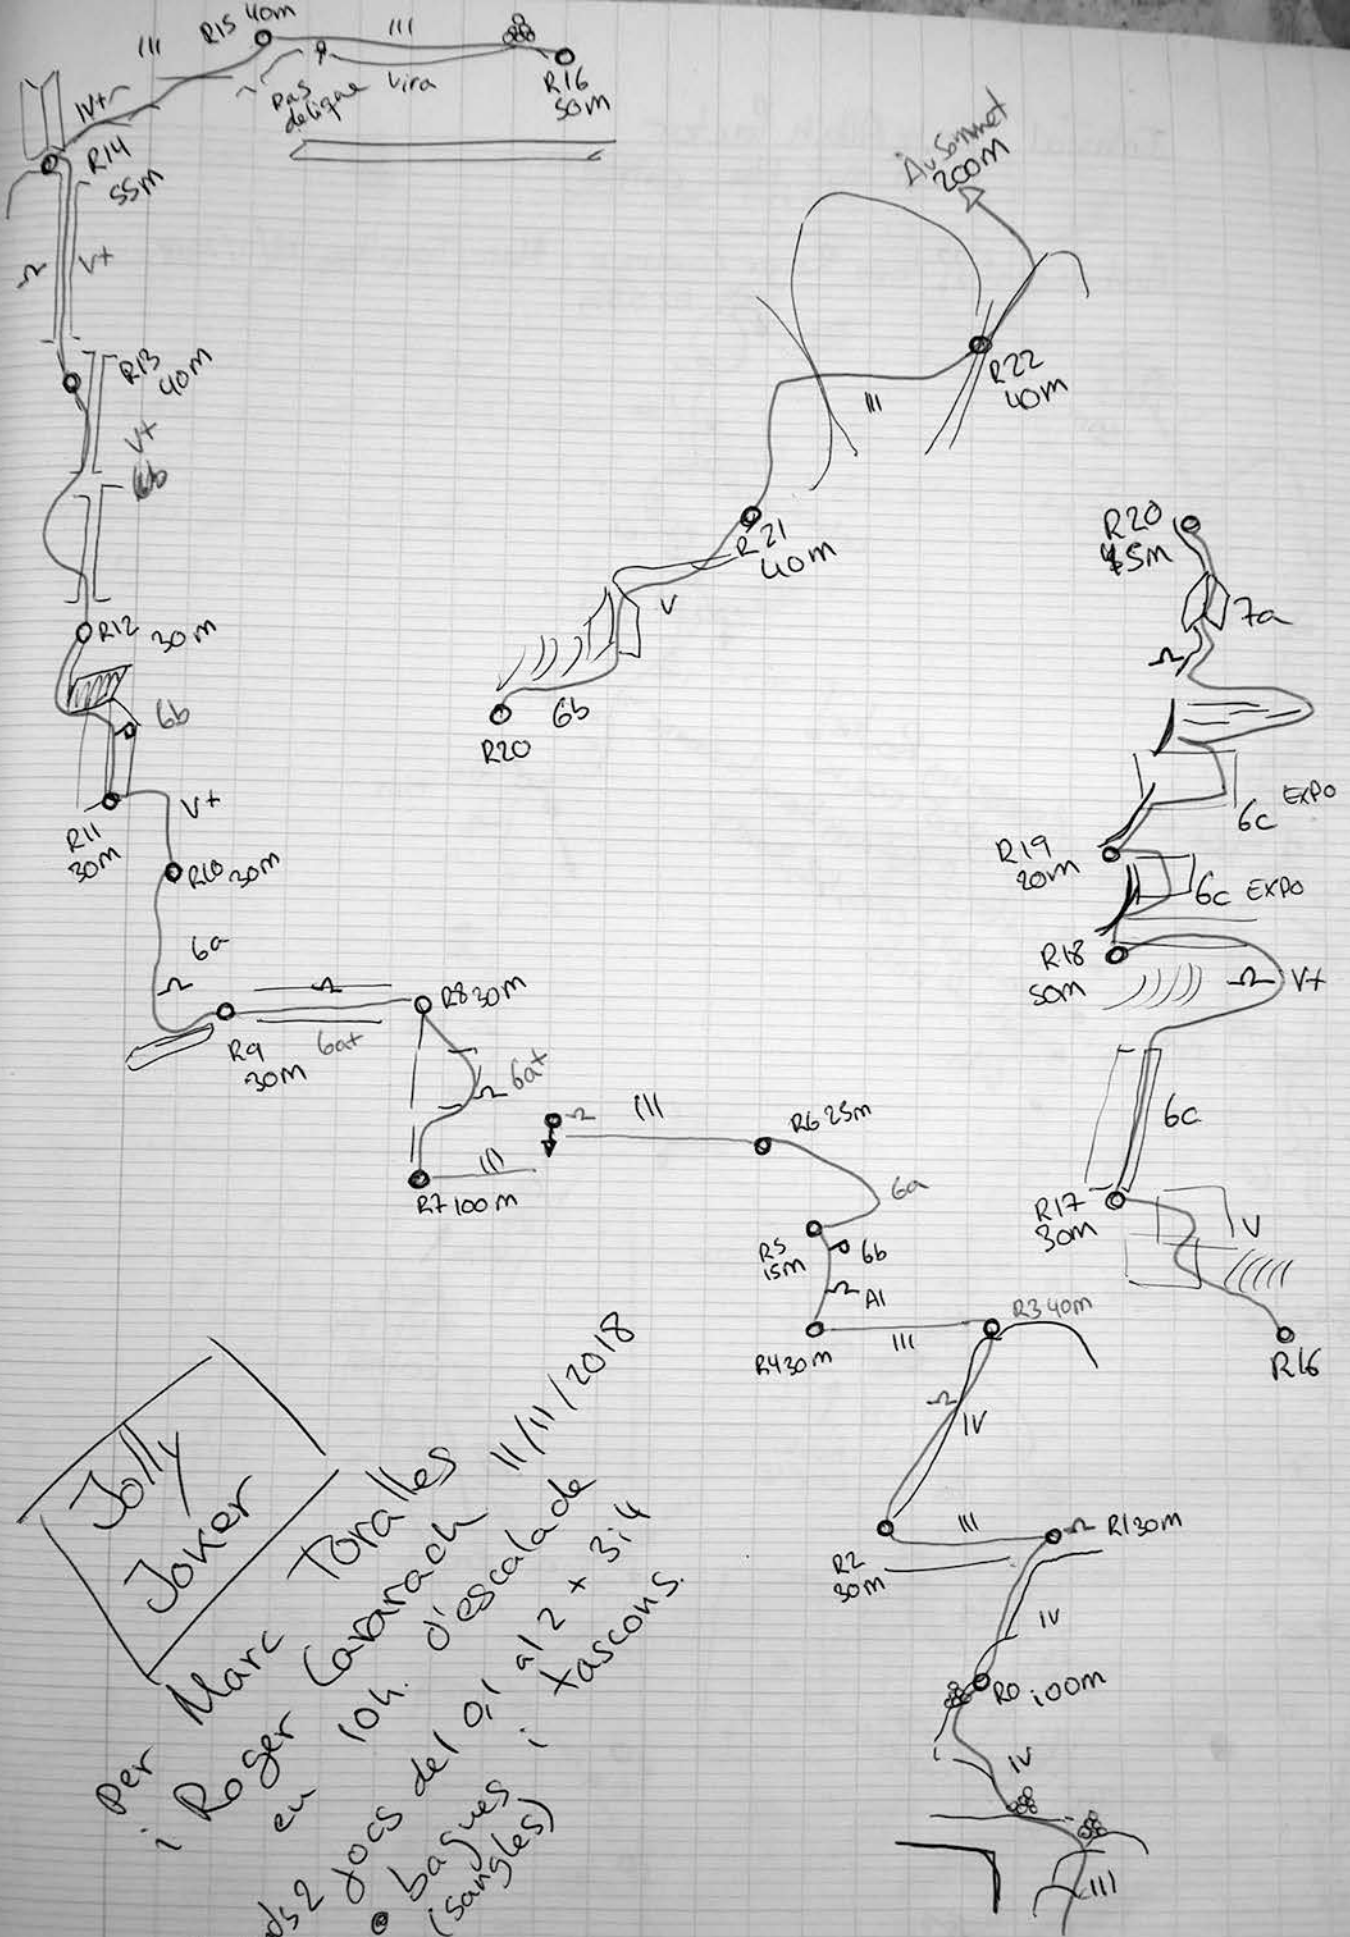 R15 40m
III
III
IV+
Pas
delique
vira
R16
50m
R14
55m
V+
R13
40m
V+
6b
R12 30m
6b
R11
30m
V+
R10 30m
6a
R9
30m
6a+
R8 30m
6a+
R7 100m
III
III
R6 25m
6a
R5
15m
6b
A1
R4 30m
III
R3 40m
IV
R2
30m
III
R1 30m
IV
R0 100m
IV
III
Au Sommet
200m
R22
40m
III
R21
40m
V
6b
R20
R20
45m
7a
6c EXPO
R19
20m
6c EXPO
R18
50m
V+
6c
R17
30m
V
R16
Jolly
Joker
Per Marc Toralles
i Roger Cararach 11/11/2018
en 10h. d'escalade
2 jocs del 0,1 al 2 + 3 i 4
bagues i tascons.
(sangles)